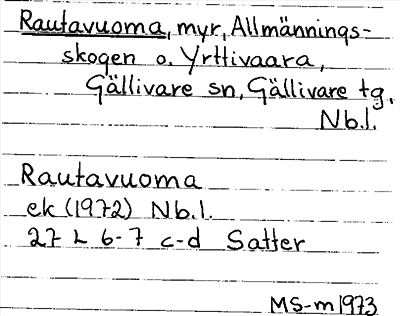 Rautavuoma, myr, Allmännings-
skogen o. Yrttivaara,
Gällivare sn, Gällivare tg.
Nb.l.
Rautavuoma
ek (1972) Nb.l.
27 L 6-7 c-d Satter
MS-m 1973